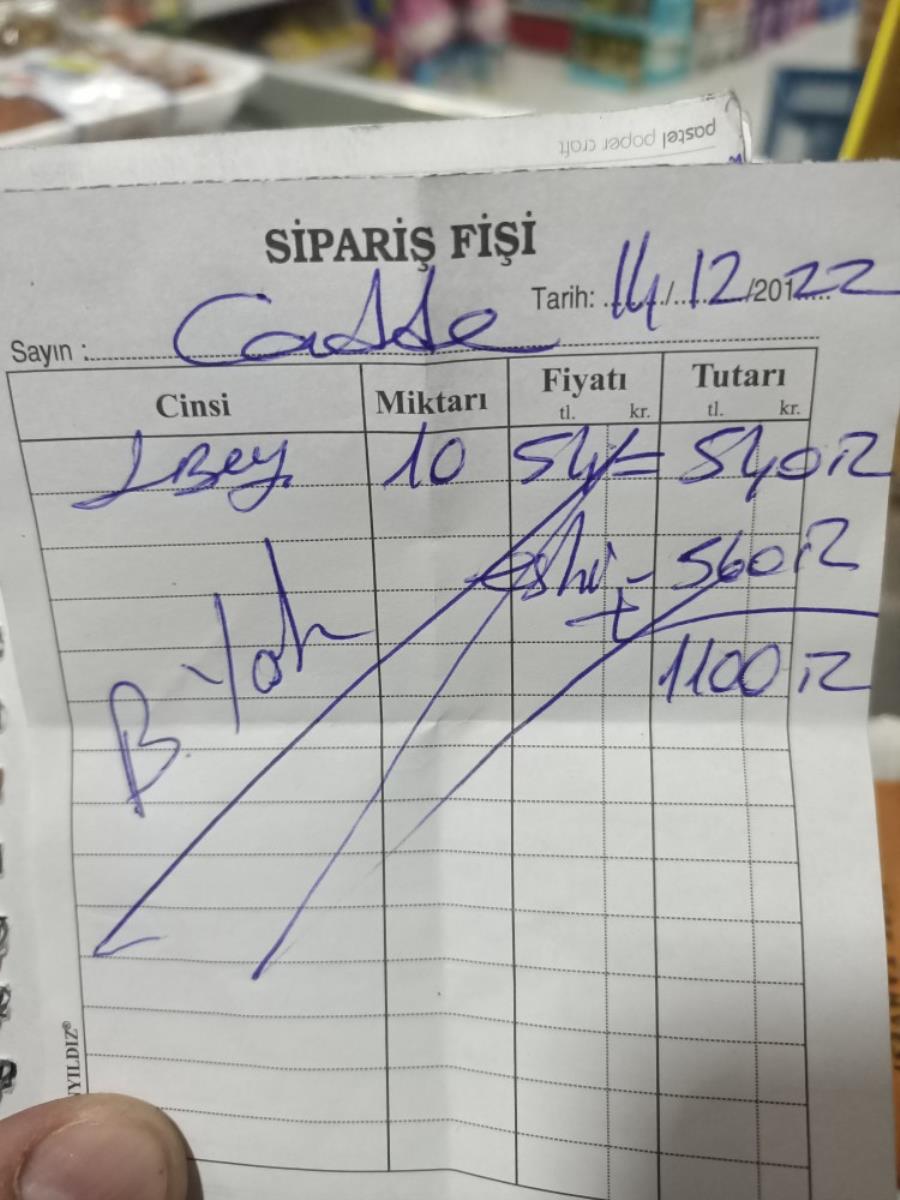 pastel paper craft
SİPARİŞ FİŞİ
Tarih: 14/12/201222
Sayın : Cadde
Cinsi Miktarı Fiyatı Tutarı
tl. kr. tl. kr.
10 54/= 540
560
+
1100
B. Yah
YILDIZ®